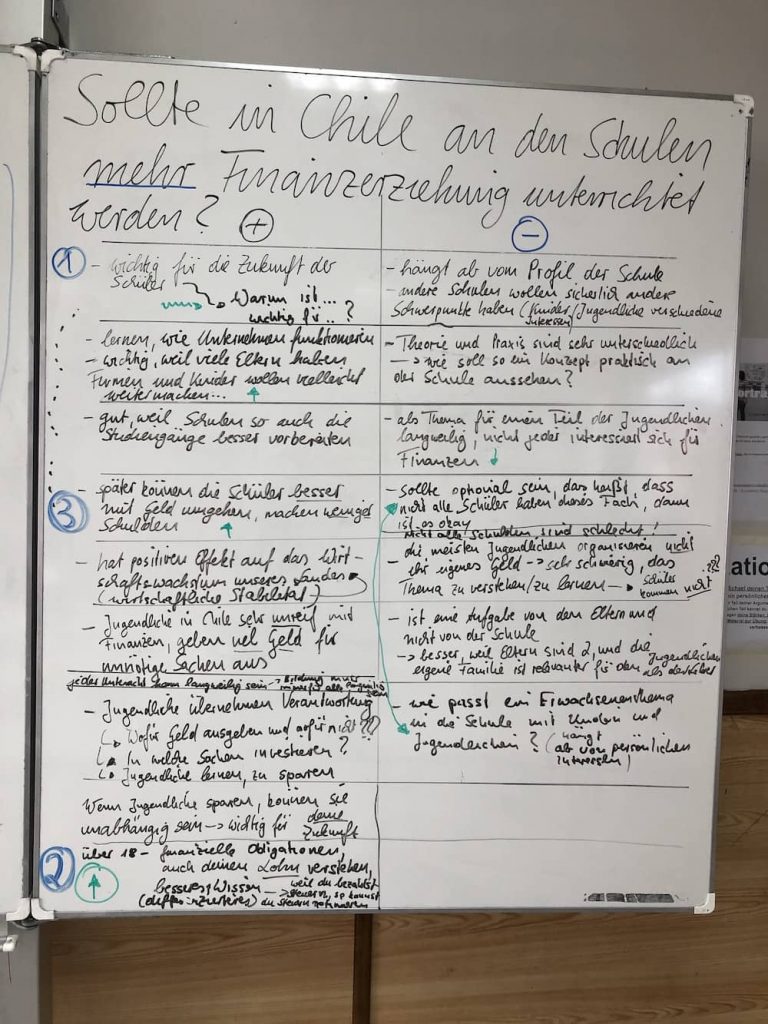 Sollte in Chile an den Schulen
mehr Finanzerziehung unterrichtet
werden?
+
-
1
- wichtig für die Zukunft der
Schüler
→ Warum ist...
wichtig für..?
- lernen, wie Unternehmen funktionieren
- wichtig, weil viele Eltern haben
Firmen und Kinder wollen vielleicht
weitermachen...
- gut, weil Schulen so auch die
Studiengänge besser vorbereiten
3
- später können die Schüler besser
mit Geld umgehen, machen weniger
Schulden
- hat positiven Effekt auf das Wirt-
schaftswachstum unseres Landes
(wirtschaftliche Stabilität)
- Jugendliche in Chile sehr unreif mit
Finanzen, geben viel Geld für
unnötige Sachen aus
jeder Unterricht kann langweilig sein → Bildung muss
- Jugendliche übernehmen Verantwortung
Wofür Geld ausgeben und wofür nicht???
In welche Sachen investieren?
Jugendliche lernen, zu sparen
Wenn Jugendliche sparen, können sie
unabhängig sein → wichtig für deine
Zukunft
2
über 18 - finanzielle Obligationen,
auch deinen Lohn verstehen,
besseres Wissen → weil du bezahlst
Steuern, so kannst
du Steuern
- hängt ab vom Profil der Schule
- andere Schulen wollen sicherlich andere
Schwerpunkte haben (Kinder/Jugendliche verschiedene
Interessen)
- Theorie und Praxis sind sehr unterschiedlich
→ wie soll so ein Konzept praktisch an
der Schule aussehen?
- als Thema für einen Teil der Jugendlichen
langweilig, nicht jeder interessiert sich für
Finanzen
- sollte optional sein, das heißt, dass
nicht alle Schüler haben dieses Fach, dann
ist es okay
Nicht alle Schulden sind schlecht!
- die meisten Jugendlichen organisieren nicht
ihr eigenes Geld → sehr schwierig, das
Thema zu verstehen/zu lernen → Schüler
kommen nicht ???
- ist eine Aufgabe von den Eltern und
nicht von der Schule
→ besser, weil Eltern sind 2, und die
eigene Familie ist relevanter für den Jugendlichen
als der Lehrer
- wie passt ein Erwachsenenthema
in die Schule mit Kindern und
Jugendlichen? (hängt
ab von persönlichen
Interessen)